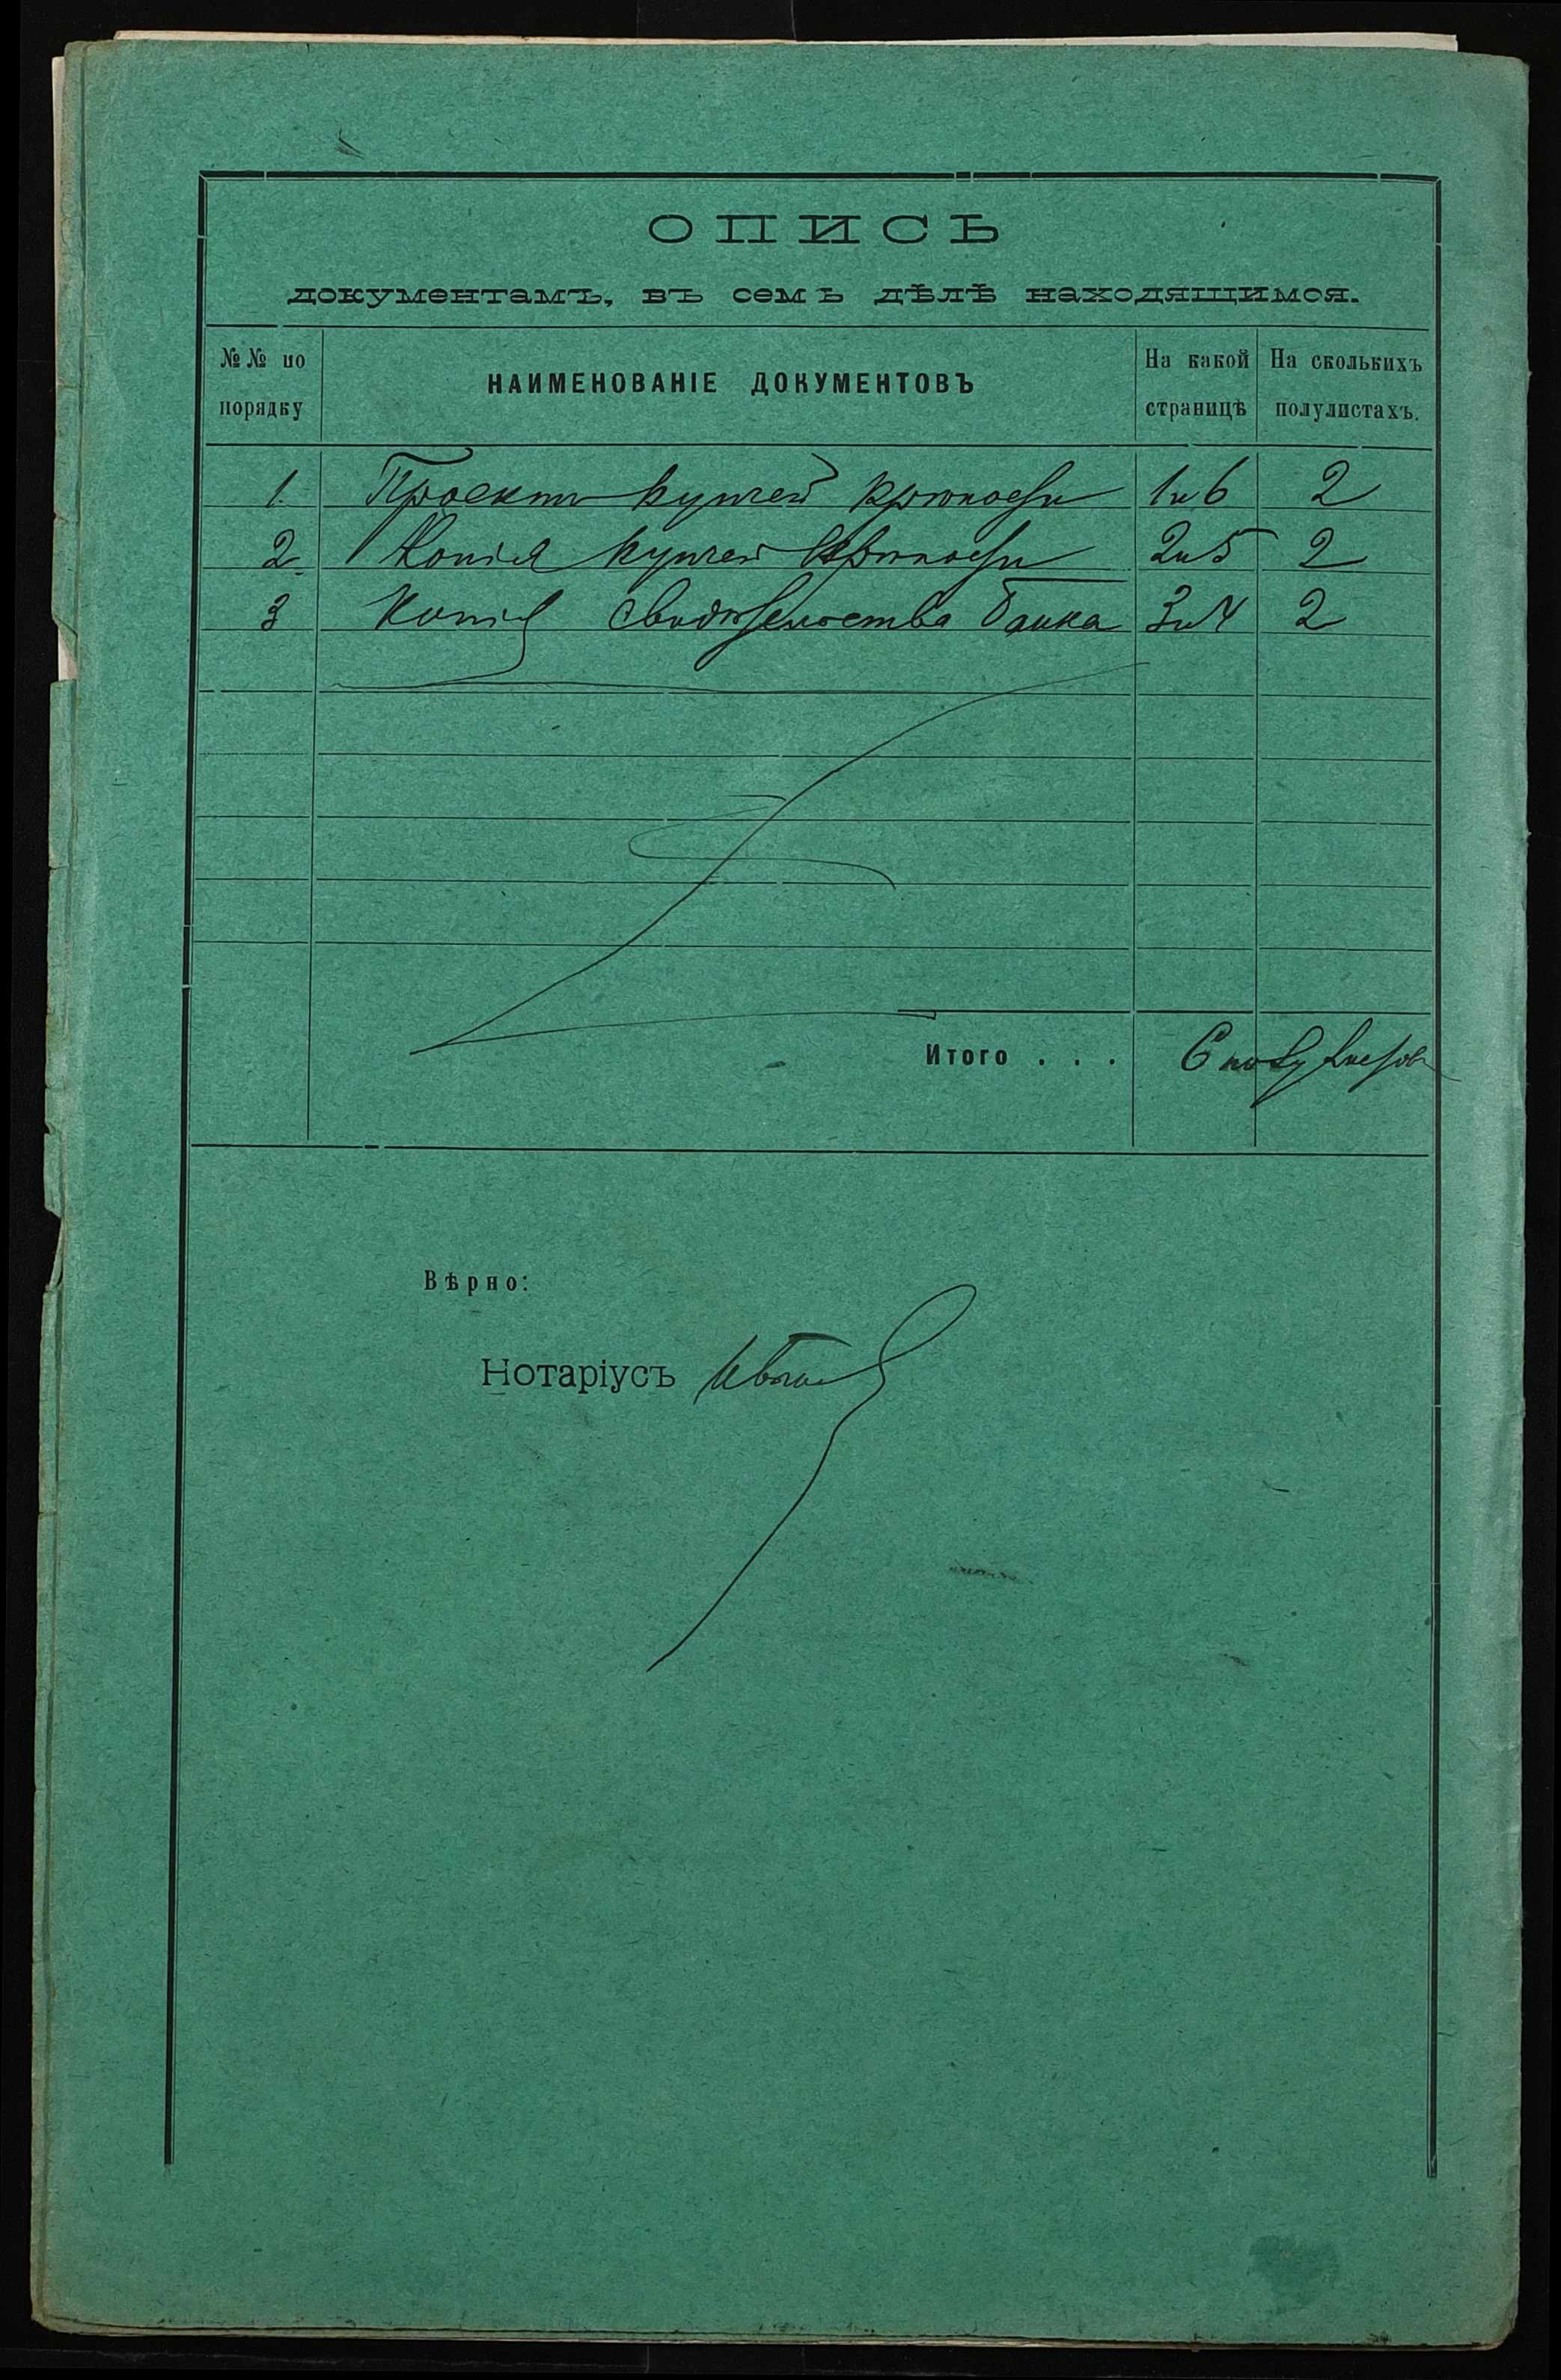 ОПИСЬ
документамъ, въ семъ дѣлѣ находящимся.
№№ по порядку
НАИМЕНОВАНІЕ ДОКУМЕНТОВЪ
На какой страницѣ
На сколькихъ полулистахъ.
1 Проектъ купчей крѣпости 1 и 6 2
2 Копія купчей крѣпости 2 и 5 2
3 Копія свидѣтельства Банка 3 и 4 2
Итого . . . 6 полулистовъ
Вѣрно:
Нотаріусъ